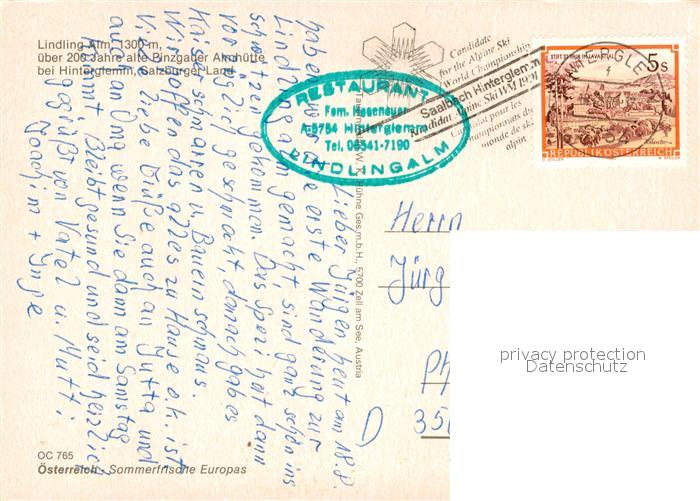 Lindling Alm, 1300 m,
über 200 Jahre alte Pinzgauer Almhütte
bei Hinterglemm, Salzburger Land
RESTAURANT
Fam. Hasenauer
A-5754 Hinterglemm
Tel. 06541-7190
LINDLINGALM
Candidate
for the Alpine Ski
World Championship
Saalbach Hinterglemm
Kandidat Alpine Ski WM 1991
Candidat pour les
championnats du
monde de ski
alpin
HINTERGLEMM
STIFT ST. PAUL IM LAVANTTAL
5 S
REPUBLIK ÖSTERREICH
Lieber Jürgen heut am 18.8.
haben wir die erste Wanderung zur
Lindling alm gemacht, sind ganz schön ins
schwitzen gekommen. Das Spezi hat dann
vorzügl. geschmeckt, danach gab es
Kaiserschmarren u. Bauernschmaus.
Wir hoffen das alles zu Hause o.k. ist
Viele liebe Grüße auch an Jutta und
auch an Oma wenn Sie dann am Samstag
kommt. Bleibt gesund und seid herzlich
gegrüßt von Vatel u. Mutti
Joachim + Inge
Kühne Ges.m.b.H., 5700 Zell am See, Austria
Herrn
Jürg
D 35
privacy protection
Datenschutz
OC 765
Österreich - Sommerfrische Europas